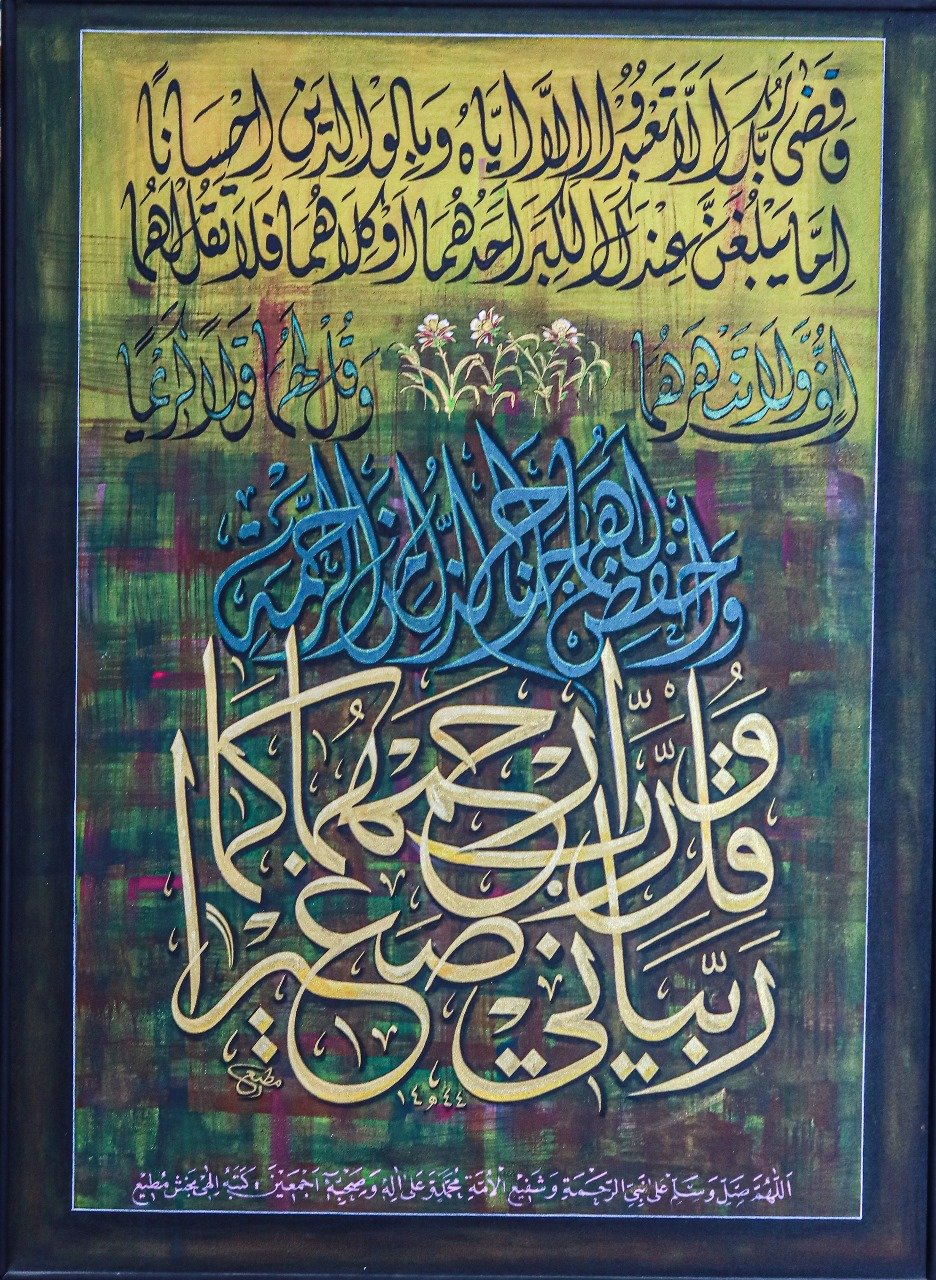 وَقَضَىٰ رَبُّكَ اَلَّا تَعْبُدُوا اِلَّا اِيَّاهُ وَبِالْوَالِدَيْنِ اِحْسَانًا
اِمَّا يَبْلُغَنَّ عِنْدَكَ الْكِبَرَ اَحَدُهُمَا اَوْ كِلَاهُمَا فَلَا تَقُلْ لَهُمَا
اُفٍّ وَّلَا تَنْهَرْهُمَا وَقُلْ لَهُمَا قَوْلًا كَرِيْمًا
وَاخْفِضْ لَهُمَا جَنَاحَ الذُّلِّ مِنَ الرَّحْمَةِ
وَقُلْ رَّبِّ ارْحَمْهُمَا كَمَا
رَبَّيَانِيْ صَغِيْرًا
مطیع
١٤ه٤٤
اَللّٰهُمَّ صَلِّ وَسَلِّمْ عَلٰى نَبِيِّ الرَّحْمَةِ وَشَفِيْعِ الْاُمَّةِ مُحَمَّدٍ وَّ عَلٰى اٰلِهٖ وَصَحْبِهٖ اَجْمَعِيْنَ كتبه الٰہی بخش مُطیع